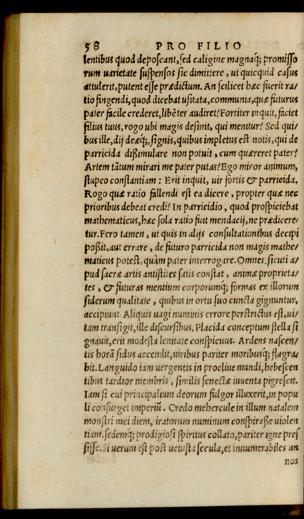 58 PRO FILIO
lentibus quod deposcant, sed caligine magnaq́; promisso
rum uarietate suspensos sic dimittere, ut quicquid casus
attulerit, putent esse prædictum. An scilicet hæc fuerit ra-
tio fingendi, quod dicebat usitata, communia, quæ futurus
pater facile crederet, libẽter audiret? Fortiter inquit, faciet
filius tuus, rogo ubi magis desinit, qui mentitur? Sed qui-
bus ille, dij deæq́;, signis, quibus impletus est notis, qui de
parricida dissimulare non potuit, cum quæreret pater?
Artem tãtum mirari me pater putas? Ego miror animum,
stupeo constantiam: Erit inquit, uir fortis & parricida.
Rogo quæ ratio fallendi est ea dicere, propter quæ nec
prioribus debeat credi? In parricidio, quod prospiciebat
mathematicus, hæc sola ratio fiut mendacij, ne prædicere-
tur. Fero tamen, ut quis in alijs consultationibus decipi
possit, aut errare, de futuro parricida non magis mathe-
maticus potest, quàm pater interrogare. Omnes, sicuti a-
pud sacræ artis antistites satis constat, animæ proprieta-
tes, & futuras mentium corporumq́; formas ex illorum
siderum qualitate, quibus in ortu suo cuncta gignuntur,
accipiunt. Aliquis uagi numinis errore perstrictus est, ui-
tam transigit, ille discursibus. Placida conceptum stella si
gnauit, erit modesta lenitate conspicuus. Ardens nascen-
tis horã sidus accendit, uiribus pariter moribusq́; flagra-
bit. Languido iam uergentis in procliue mundi, hebescen
tibus tardior membris, similis senectæ iuuenta pigrescet.
Iam si cui principalium deorum fulgor illuxerit, in popu
li consurget imperiũ. Credo mehercule in illum natalem
monstri mei diem, iratorum numinum conspirasse uiolen
tiam, sedemq́; prodigiosi spiritus collato, pariter igne pres
sisse. Si uerum est post uetusta secula, et innumerabiles an
nos